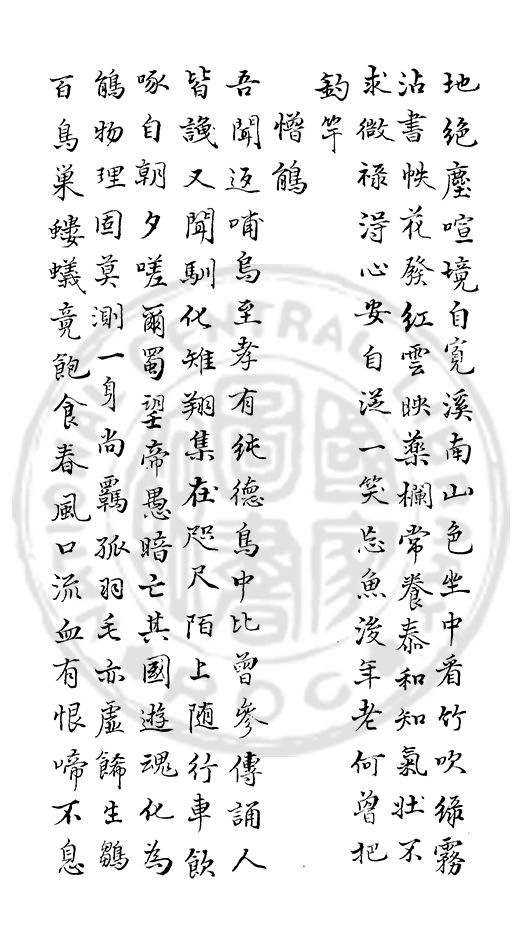 地絶塵喧境自寬溪南山色坐中看竹吹綠霧
沾書帙花發紅雲映藥欄常養泰和知氣壯不
求微祿得心安自從一笑忘魚後年老何曾把
釣竿
憎鵑
吾聞返哺烏至孝有純德鳥中比曾參傳誦人
皆識又聞馴化雉翔集在咫尺陌上随行車飲
啄自朝夕嗟爾蜀望帝愚暗亡其國遊魂化為
鵑物理固莫測一身尚羈孤羽毛亦虛餙生鶵
百鳥巢螻蟻竟飽食春風口流血有恨啼不息